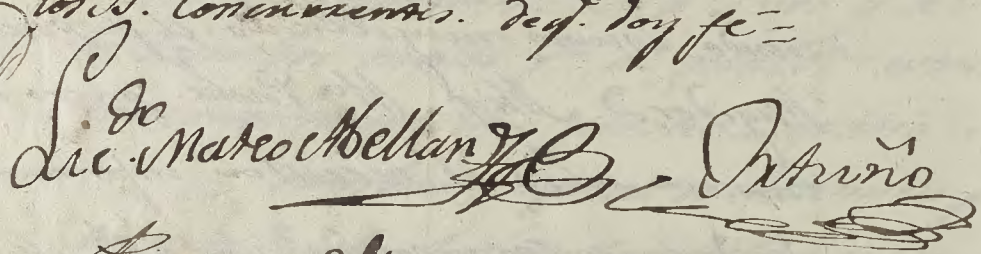 los S. Concurrentes. deq. doy fé=
Lic.do Mateo Abellan Ortuño